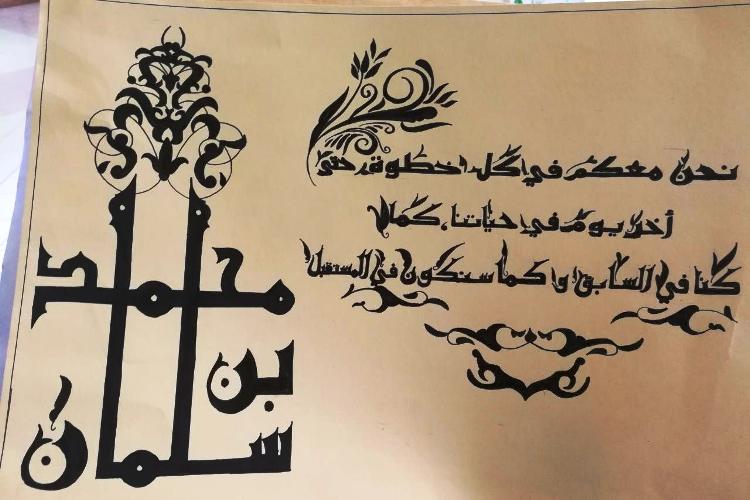 نحن معكم في كل خطوة، حتى
أخر يوم في حياتنا، كما
كنا في السابق وكما سنكون في المستقبل
محمد
بن
سلمان